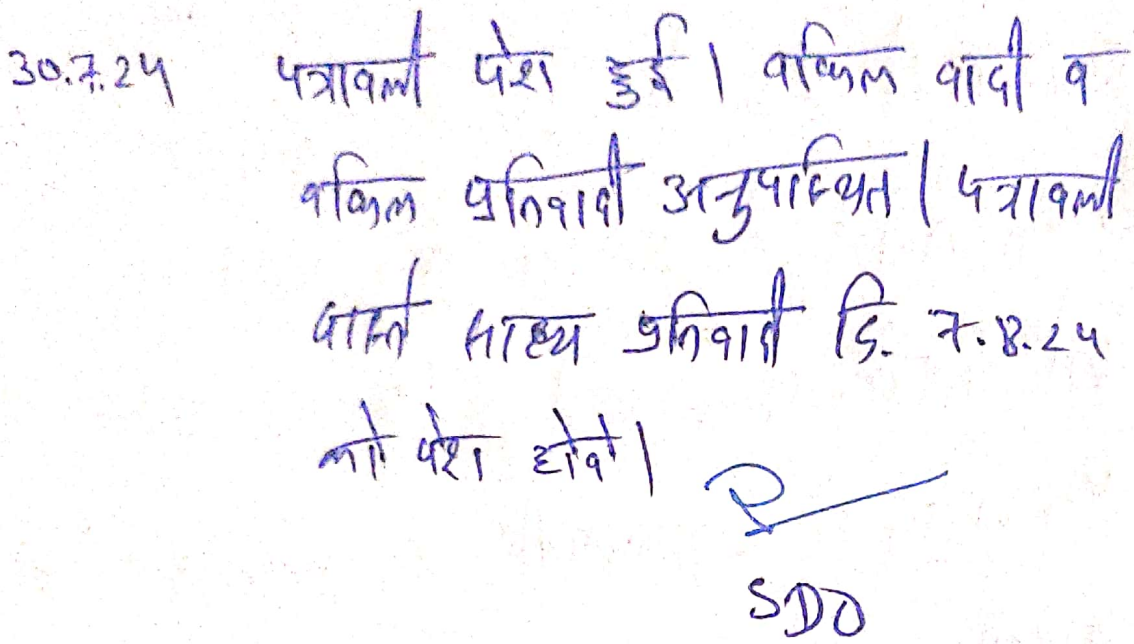 30.7.24 पत्रावली पेश हुई। वकिल वादी व
वकिल प्रतिवादी अनुपस्थित। पत्रावली
वास्ते साक्ष्य प्रतिवादी दि. 7.8.24
को पेश होवे।
SDO